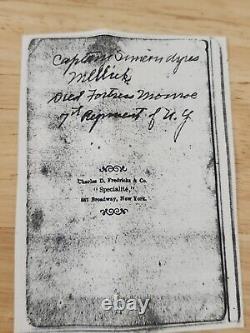 Captain Simeon dyes
Mellick
Died Fortress Monroe
7th Regiment of N.Y
Charles D. Fredricks & Co.
"Specialité,"
587 Broadway, New York.